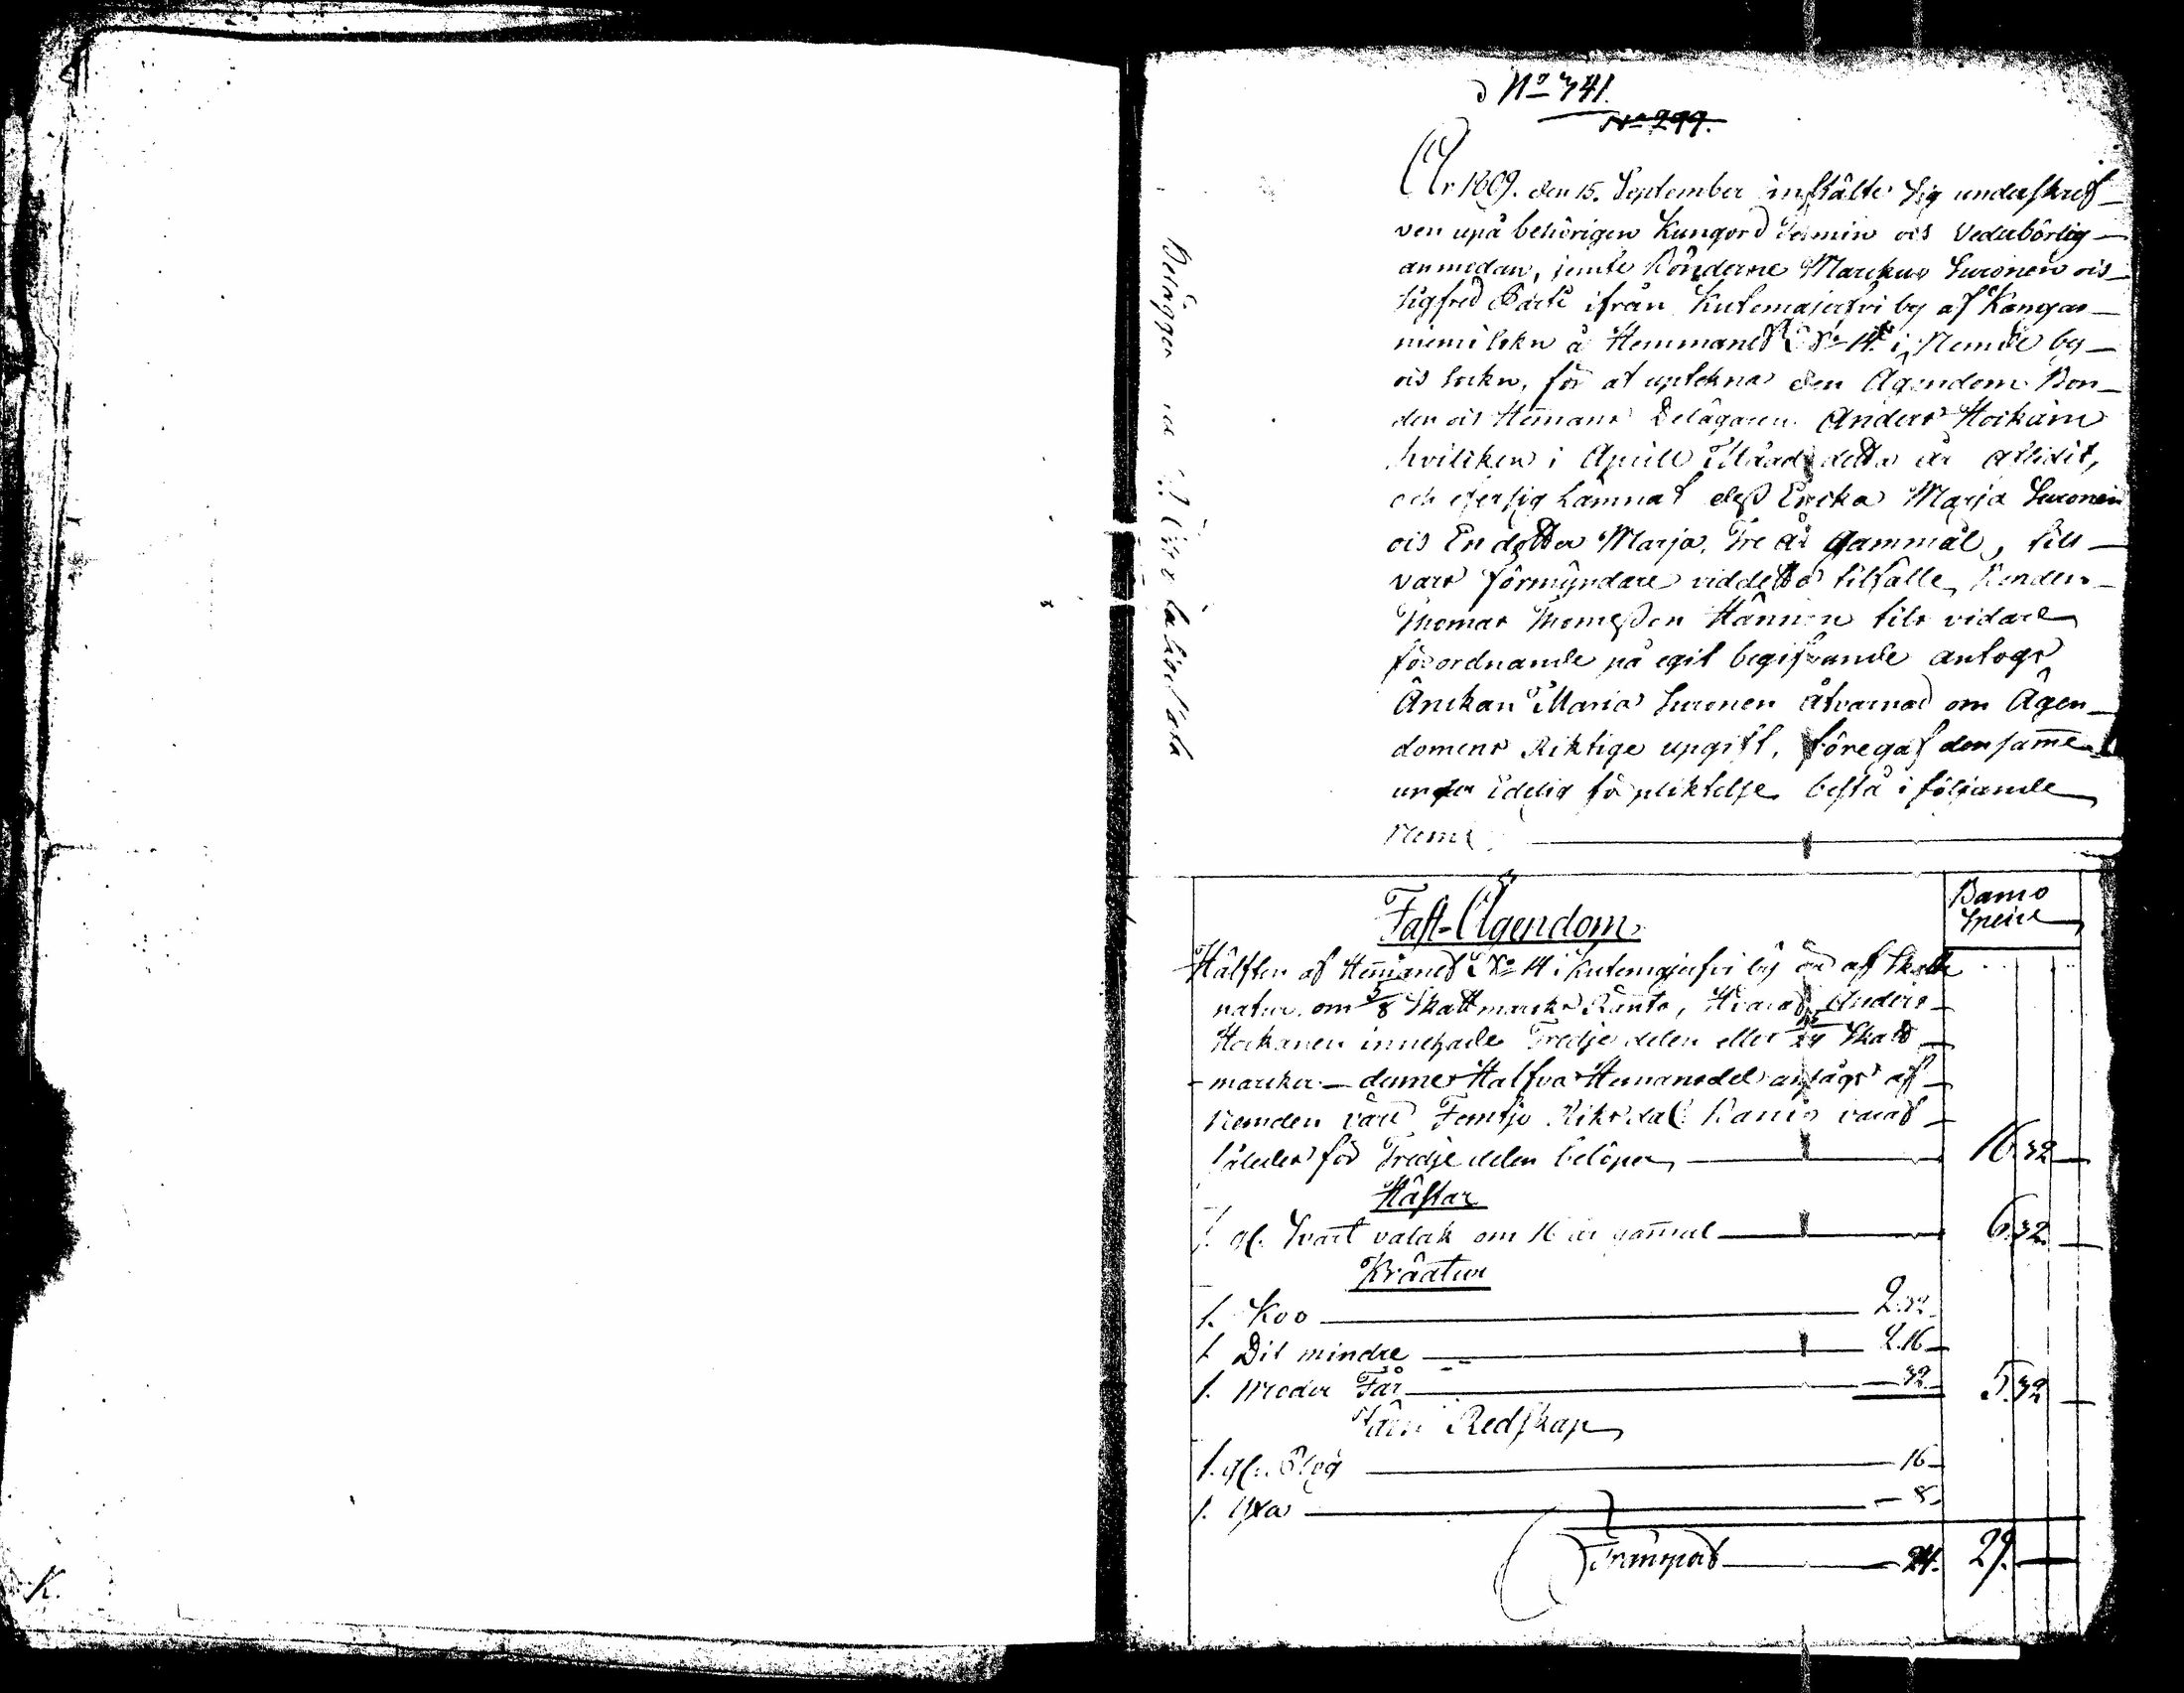 No 341.
No 299.
År 1809. den 15. September instälte sig underskref-
ven upå behörigen Kungord Termin och Vederbörlig-
anmodan, jemte Bönderne Marckus Suronen och
Sigfred ifrån Kutemajerfvi by af Kangas-
niemi Sokn å Hemmanet No 14 i Nemde by-
och Sockn, för at uptekna den Ägendom Bon-
den och Hemans Delägaren Anders Hockain
hvilcken i Aprill Månad detta år aflidit,
och efter sig Lämnat dess Encka Marja Suronen
och En dotter Marja, Tre år gammal, till
vars förmyndare vid detta tilfälle, Bonden
Thomas Thomesson Hännin tils vidare
förordnande på egit begifvande antogs
Änckan Maria Suronen åtvarnad om Ägen-
domens Riktige upgift, föregaf den samma
under Edelig förpliktelse bestå i följande
Nem
Fast-Ägendom
Banco
Specie
Hälften af Hemanet No 14 i Kutemajerfvi by är af Skatte
natur om 5/8 Skattmarcks Ränta, Hvaraf Anders
Hockanen innehade Tredje delen eller 5/24 Skatt
marcker - denne Halfva Hemansdel ansågs af
Nemden värd Femtjo Riksdal Banco varaf
således för Tredje delen belöper 16.32
Hästar
1. gl. Svart valak om 16 år gammal 6.32.
Kräatur
1. Koo 2.32
1 Dit mindre 2.16
1. Moder Får 32 5.32
Järn Redskap
1. gl. Plog 16
1. Yxa 8
Transport 24. 29.
K.